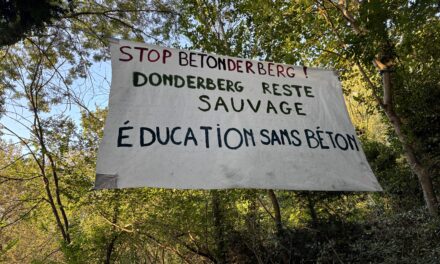 STOP BETONDERBERG !
DONDERBERG RESTE
SAUVAGE
ÉDUCATION SANS BÉTON